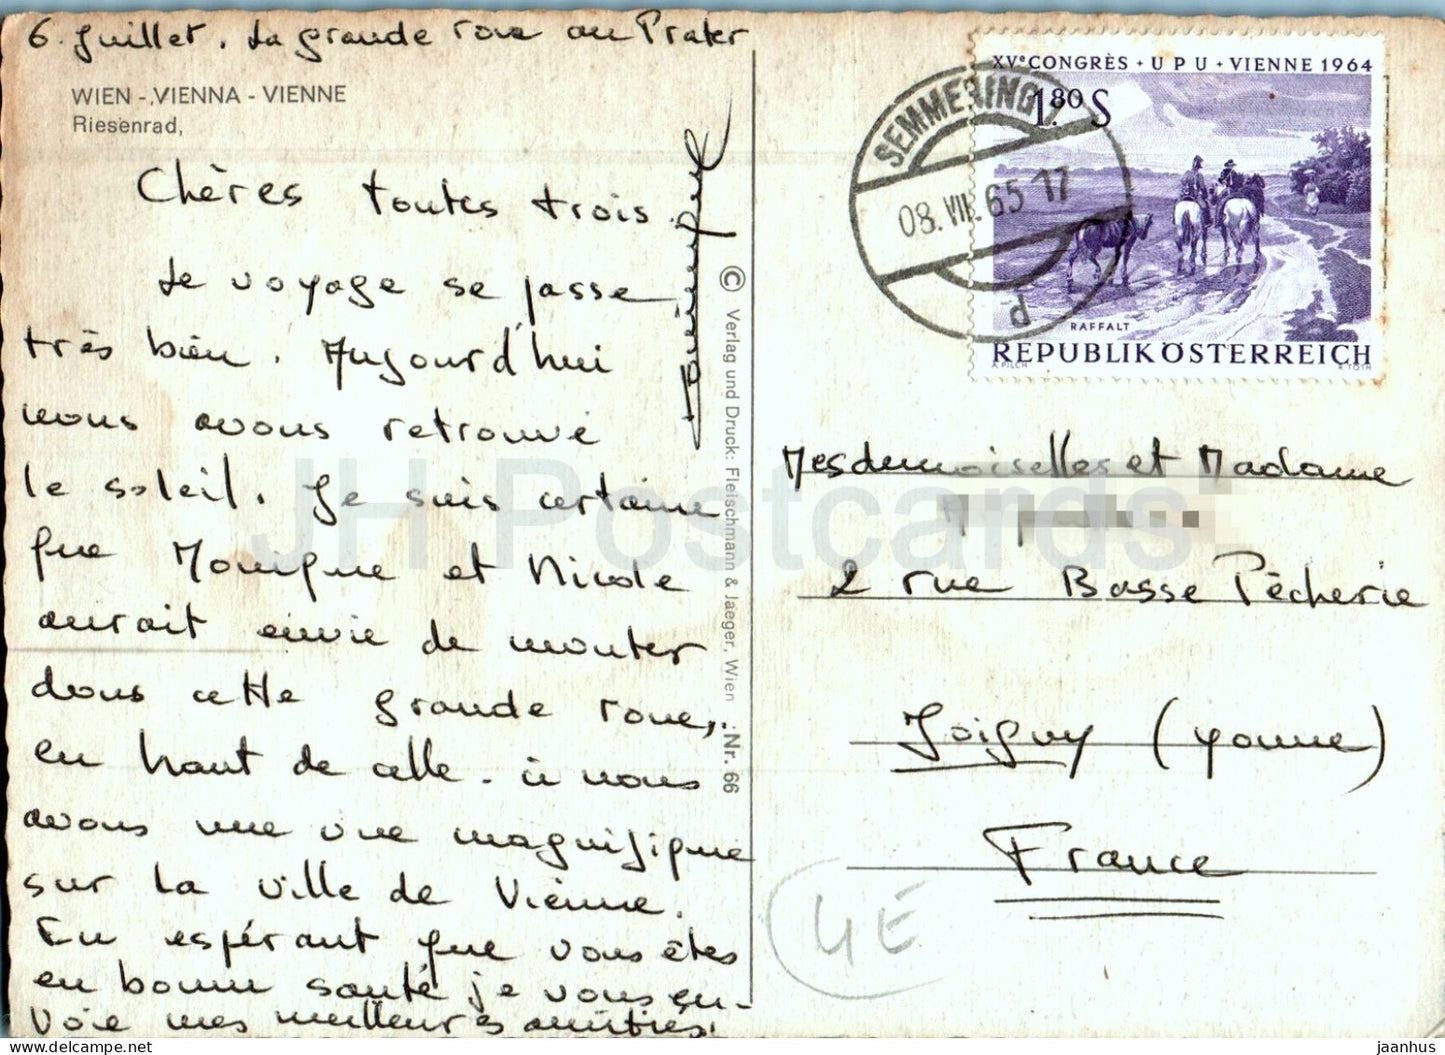 6. Juillet. La grande roue au Prater
WIEN - VIENNA - VIENNE
Riesenrad,
Chères toutes trois
Le voyage se passe
très bien. Aujourd'hui
nous avons retrouvé
le soleil. Je suis certaine
que Monique et Nicole
aurait envie de monter
dans cette grande roue,
en haut de celle-ci nous
avons une vue magnifique
sur la ville de Vienne.
En espérant que vous êtes
en bonne santé je vous en-
voie mes meilleures amitiés.
© Verlag und Druck: Fleischmann & Jaeger, Wien Nr. 66
XVe CONGRÈS · UPU · VIENNE 1964
1.80 S
RAFFALT
REPUBLIK ÖSTERREICH
A. PILCH K. TOTH
SEMMERING 1
08.VII.65 17
d
Mesdemoiselles et Madame
2 rue Basse Pêcherie
Joigny (Yonne)
France
4E
JH Postcards
jaanhus